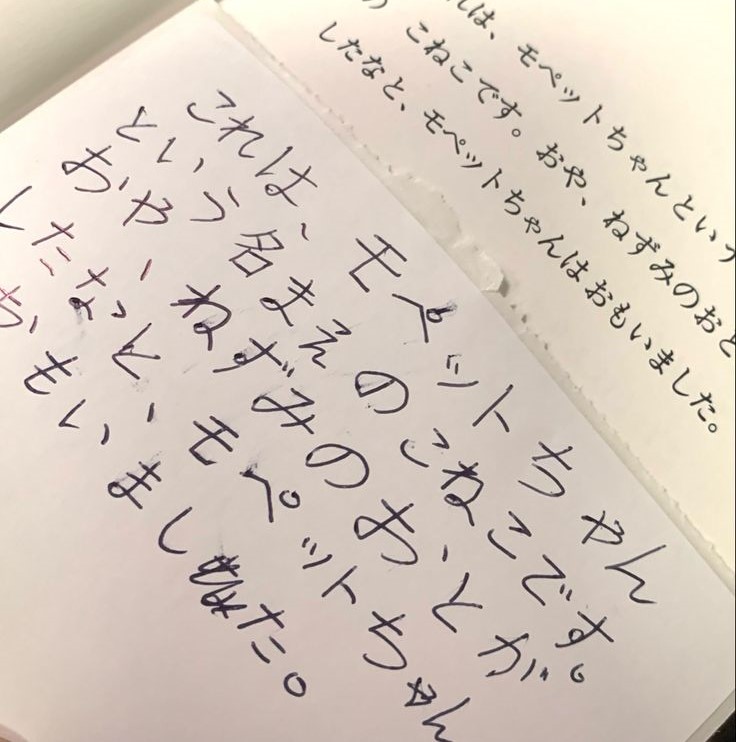 これは、モペットちゃん
という名まえのこねこです。
おや、ねずみのおとが。
したなと、モペットちゃん
おもいました。
れは、モペットちゃんとい
こねこです。おや、ねずみのおと
したなと、モペットちゃんはおもいました。